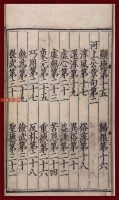 顯德第十五　歸根第十六
河上公章句第二
淳風第十七　俗薄第十八
還淳第十九　異俗第二十
虛心第二十一　益謙第二十二
虛無第二十三　苦恩第二十四
象元第二十五　重德第二十六
巧用第二十七　反朴第二十八
無為第二十九　儉武第三十
偃武第三十一　聖德第三十二